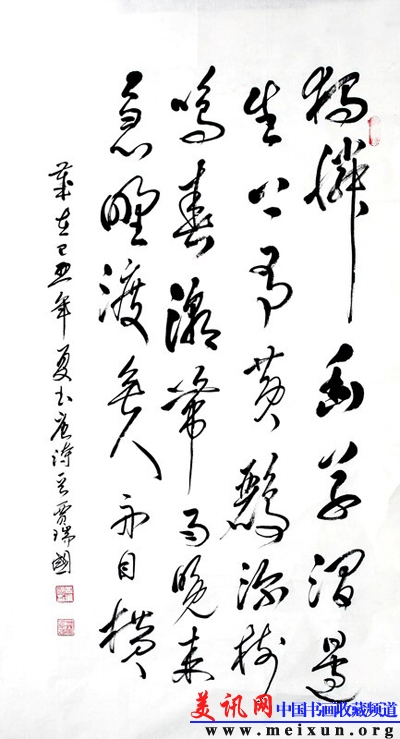 獨憐幽草澗邊
生上有黄鸝深樹
鳴春潮帶雨晚来
急野渡無人舟自横
歲在己丑年夏书唐诗 賈瑞國
美讯网 中国书画收藏频道
www.meixun.org